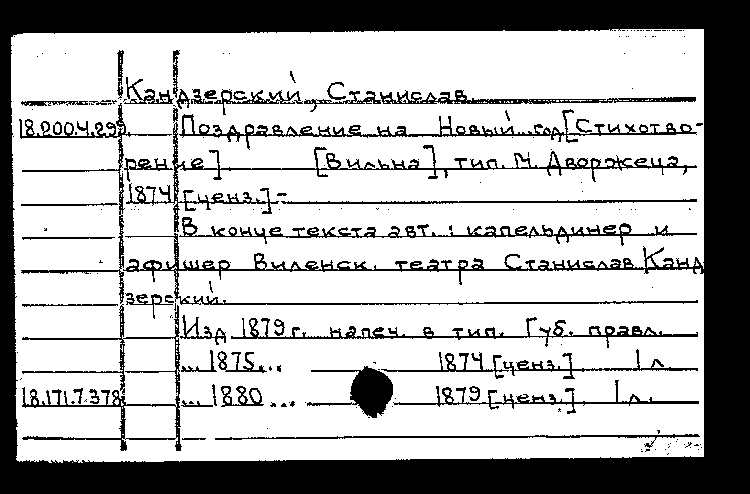 Кандзерский, Станислав
18.200.4.299. Поздравление на Новый год [Стихотво-
рение]. [Вильна], тип. М. Дворжеца,
1874 [ценз.]-
В конце текста авт.: капельдинер и
афишер Виленск. театра Станислав Канд
зерский.
Изд 1879 г. напеч. в тип. Губ. правл.
... 1875... 1874 [ценз.] 1 л
18.171.7.378 ... 1880 ... 1879 [ценз.]. 1 л.